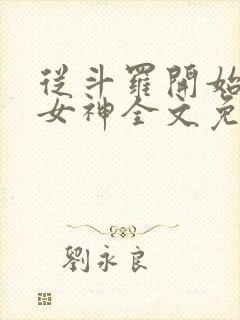 從斗羅開始
女神全文免
劉永良